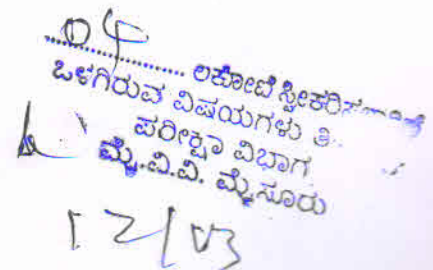 04 ಲಕೋಟೆ ಸ್ವೀಕರಿಸಲಾಗಿದೆ
ಒಳಗಿರುವ ವಿಷಯಗಳು
ಪರೀಕ್ಷಾ ವಿಭಾಗ
ಮೈ.ವಿ.ವಿ. ಮೈಸೂರು
12/03